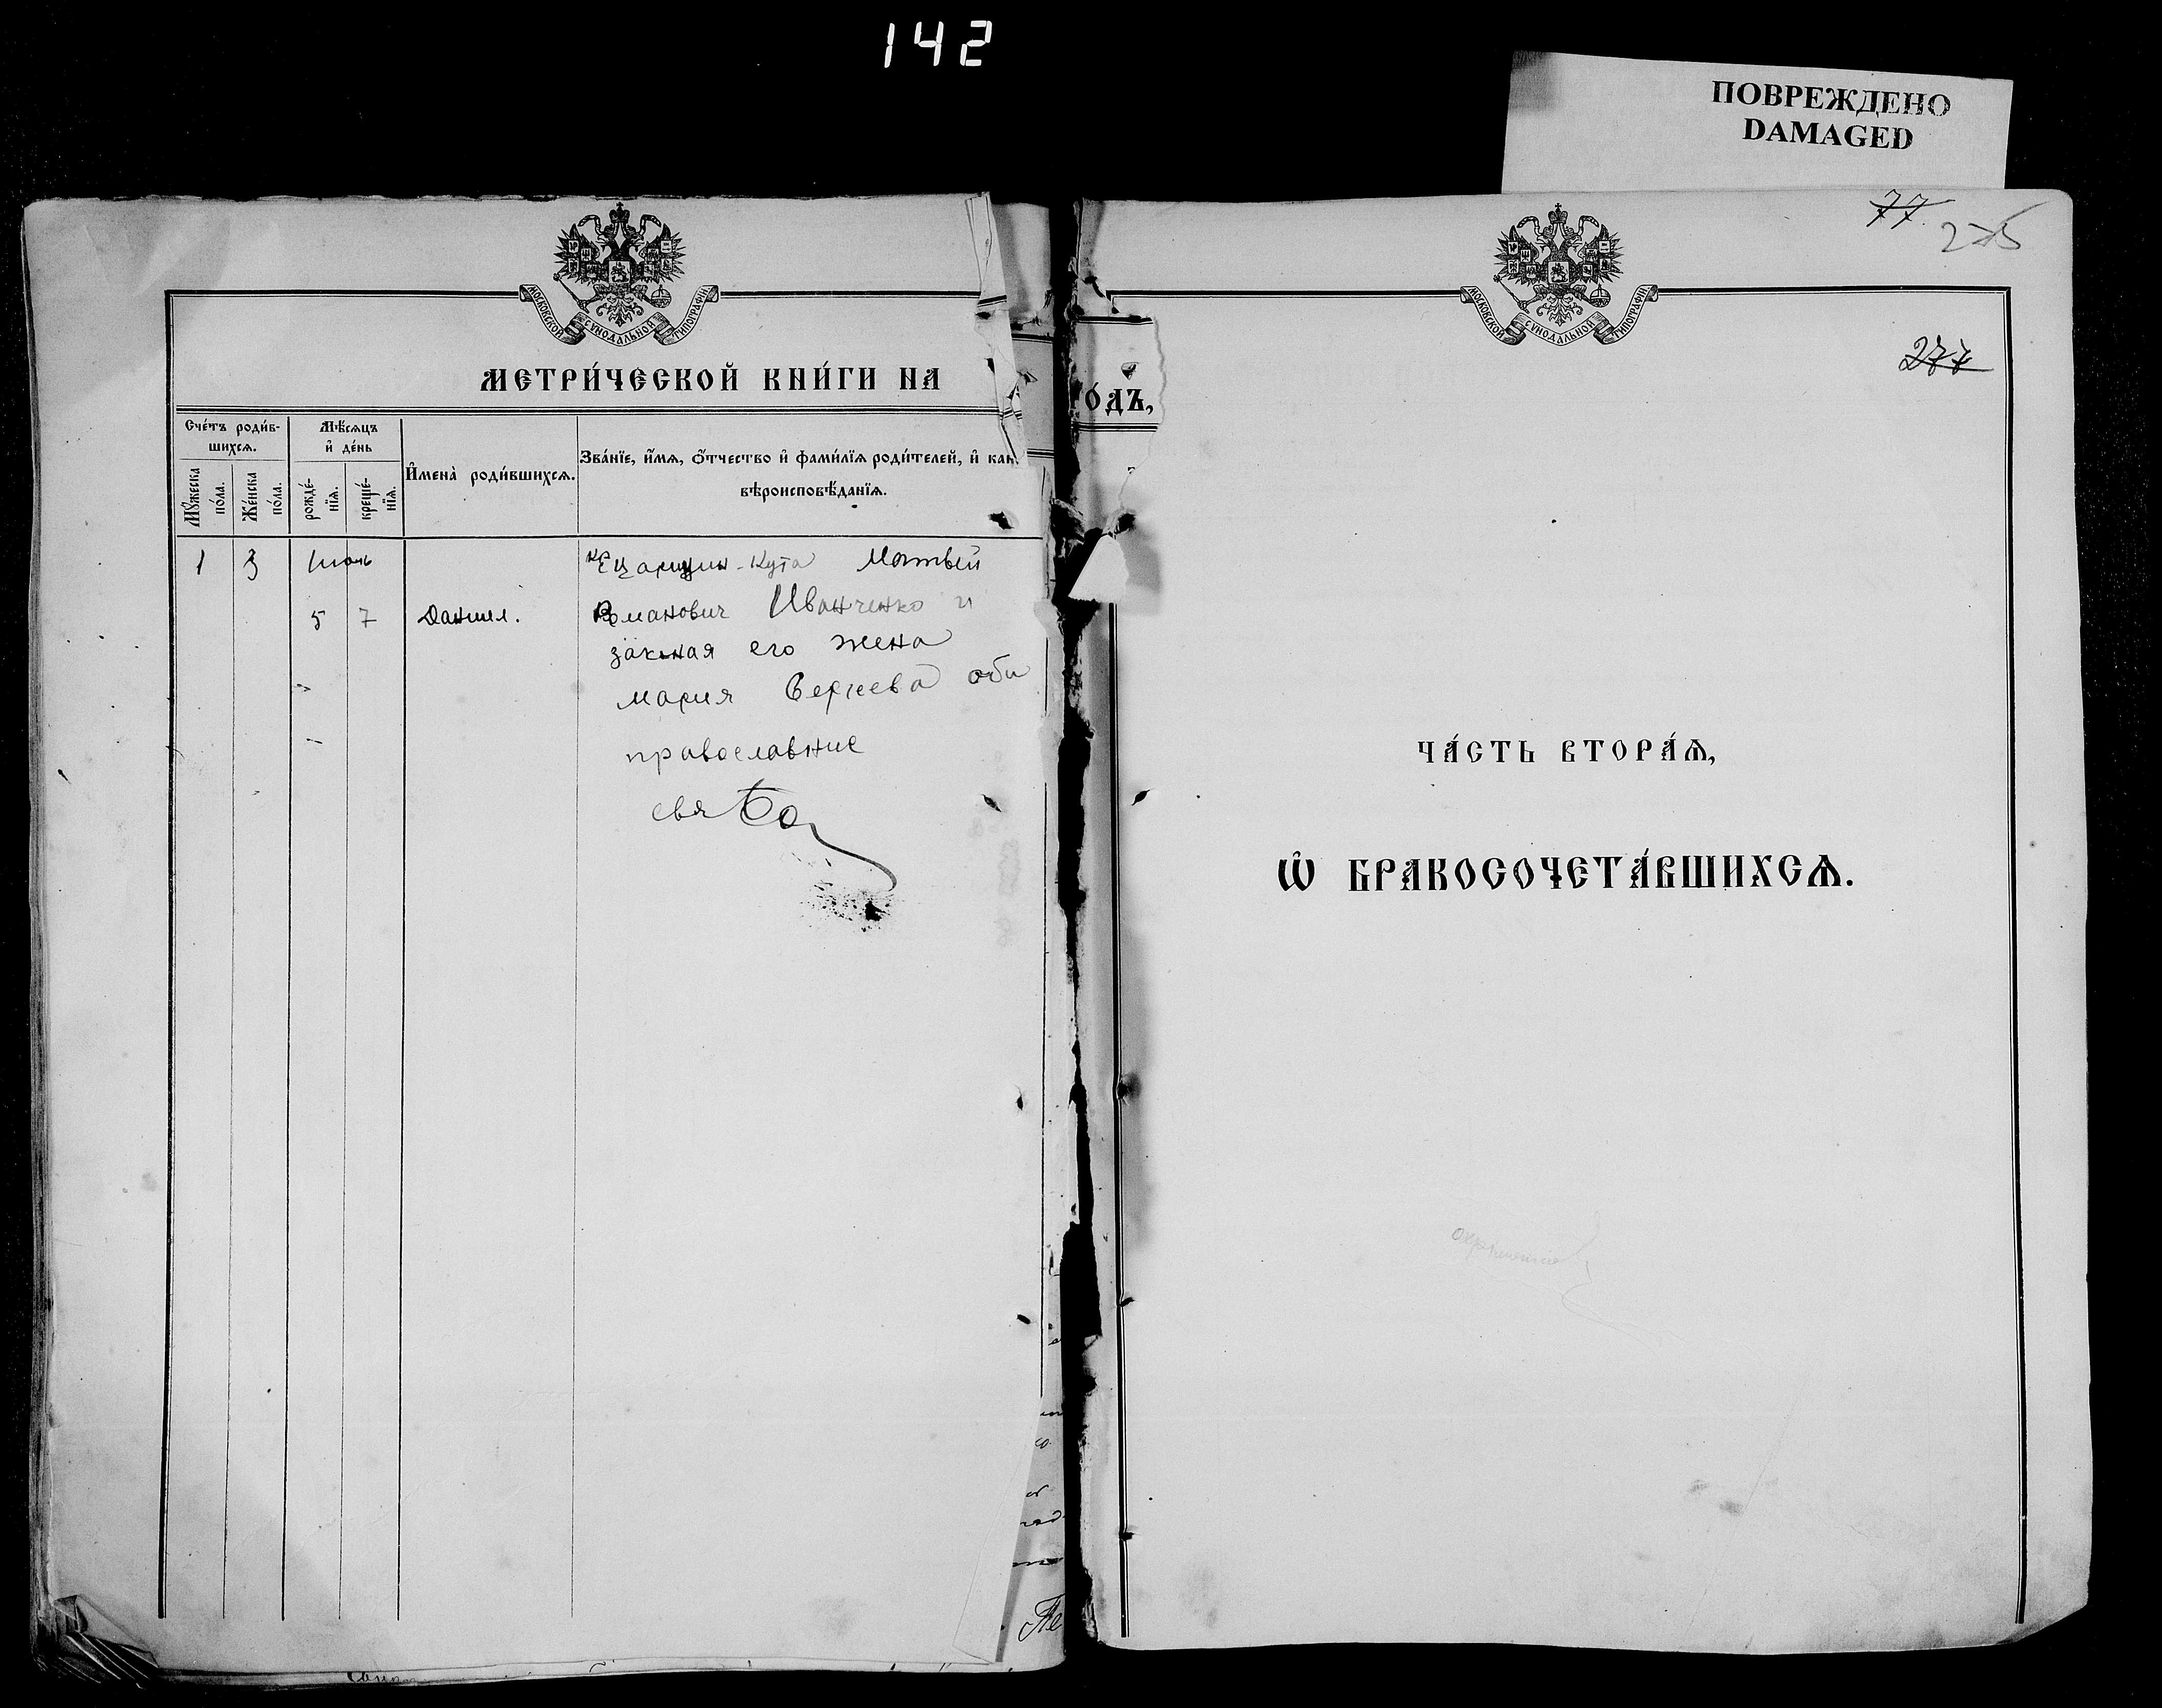 142
ПОВРЕЖДЕНО
DAMAGED
МОСКОВСКОЙ СѴНОДАЛЬНОЙ ТИПОГРАФІИ
МЕТРИ́ЧЕСКОЙ КНИ́ГИ НА
Сче́тъ роди́в-
шихсѧ.
Мꙋ́жеска
по́ла.
Же́нска
по́ла.
Мѣ́сѧцъ
и҆ де́нь
рожде́-
нїѧ.
креще́-
нїѧ.
И҆мена̀ роди́вшихсѧ.
Зва́нїе, и҆́мѧ, ѻ҆́тчество и҆ фами́лїѧ роди́телей, и҆ как
вѣроисповѣ́данїѧ.
1 3 Июль
кр Царицын-Кута Матвей
5 7 Даниил.
Романович Иванченко и
законая его жена
Мария Сергеева оби
православние
ѻ́дъ,
77.
275
МОСКОВСКОЙ СѴНОДАЛЬНОЙ ТИПОГРАФІИ
277
ЧА́СТЬ ВТОРА́Ѧ,
Ѡ҆ БРАКОСОЧЕТА́ВШИХСѦ.